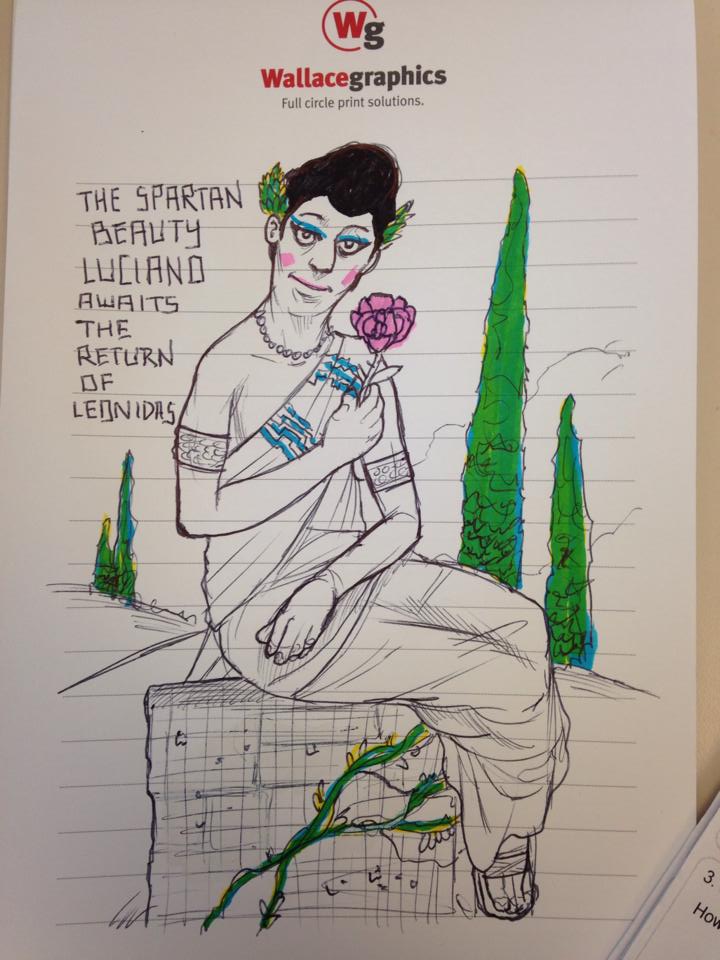 Wg
Wallacegraphics
Full circle print solutions.
THE SPARTAN
BEAUTY
LUCIANO
AWAITS
THE
RETURN
OF
LEONIDAS
3.
How